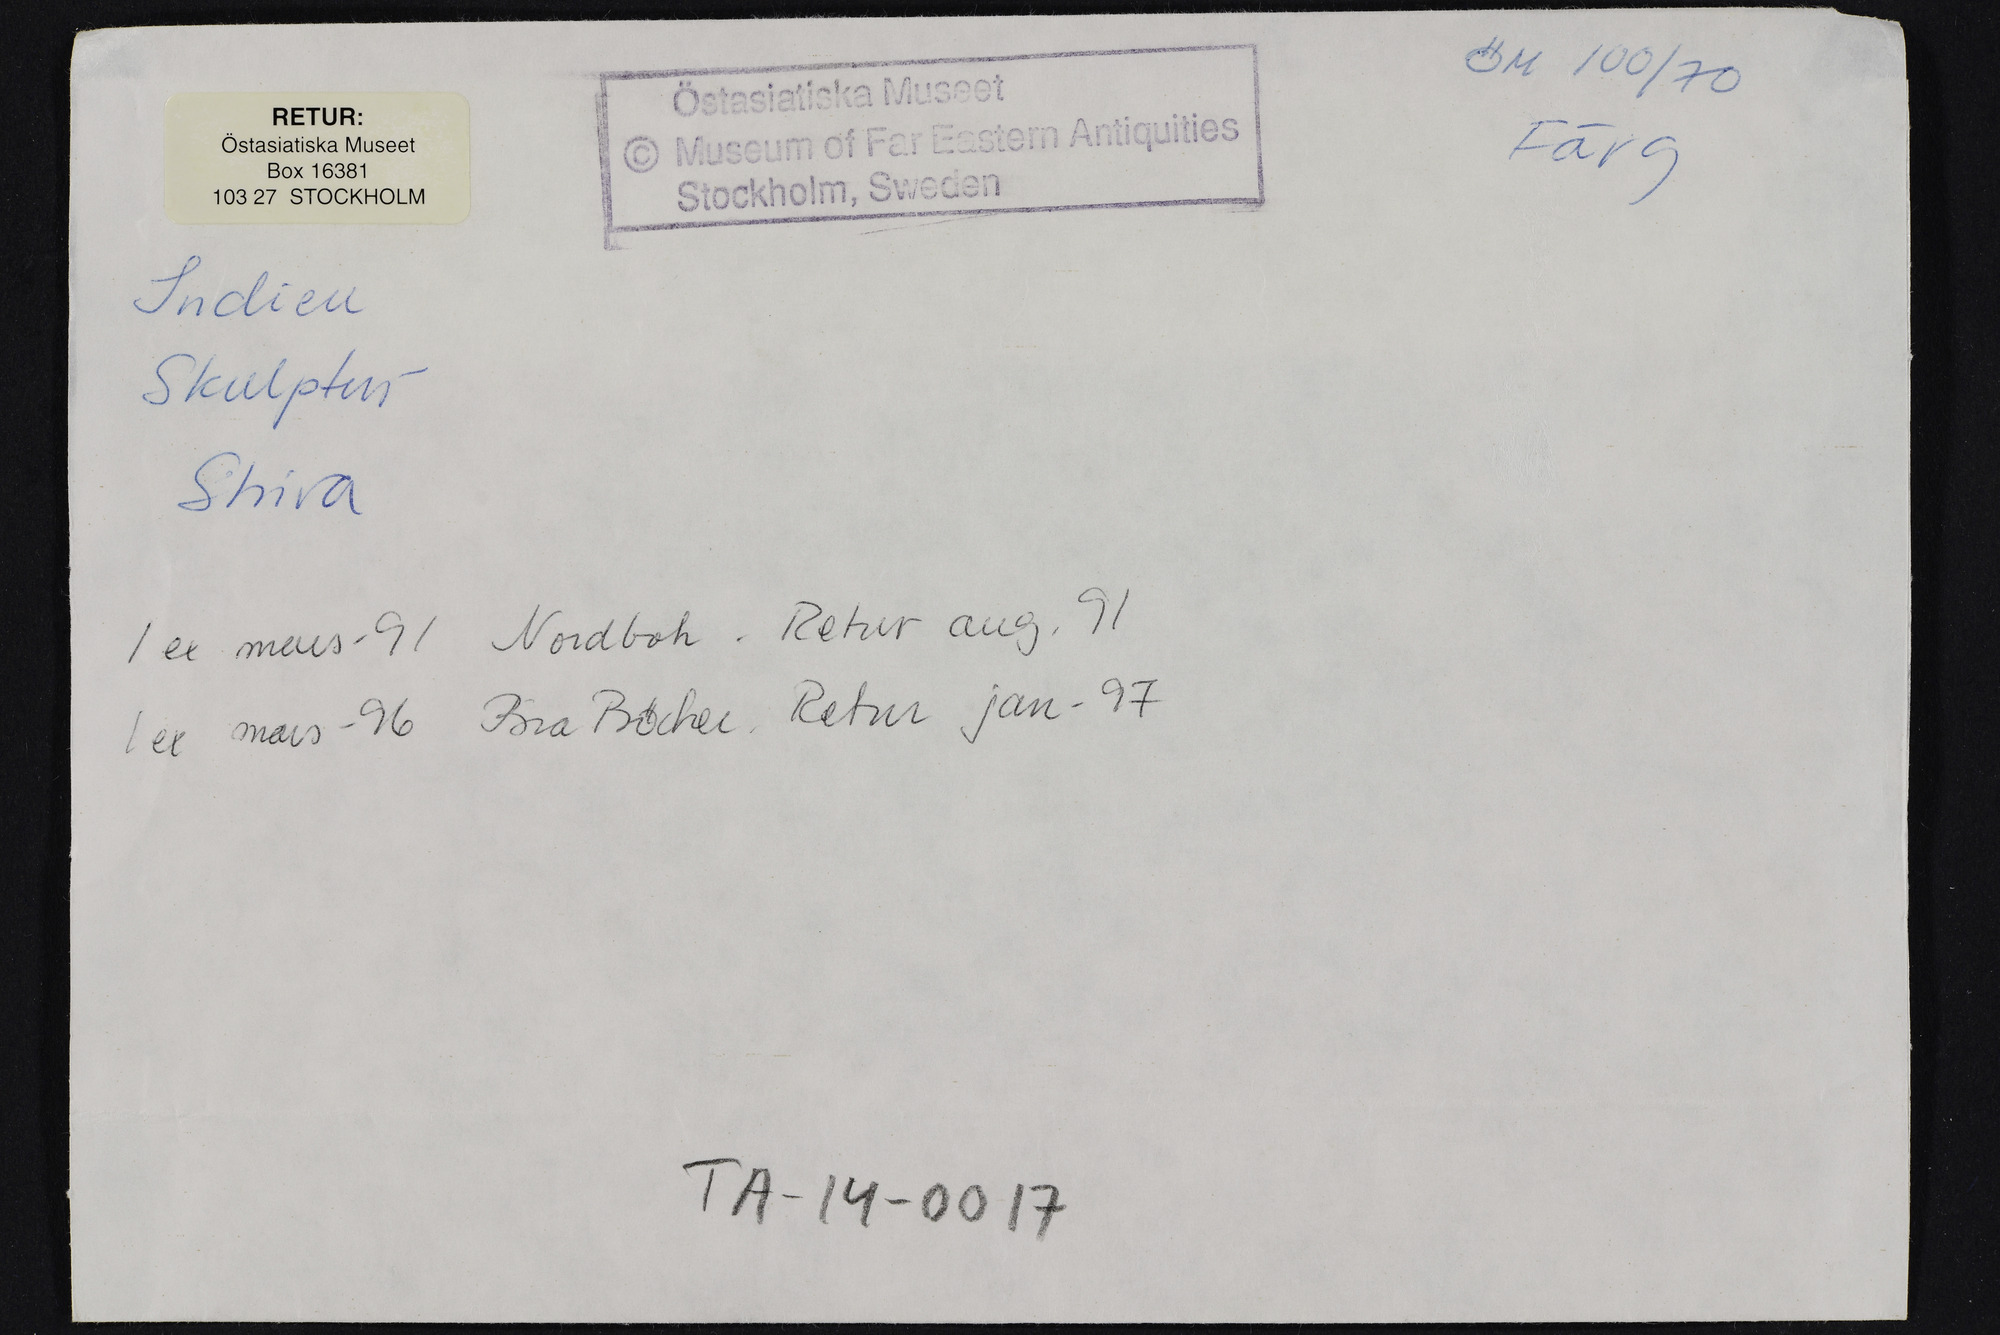 RETUR:
Östasiatiska Museet
Box 16381
103 27 STOCKHOLM
Östasiatiska Museet
© Museum of Far Eastern Antiquities
Stockholm, Sweden
ÖM 100/70
Färg
Indien
Skulptur
Shiva
1 ex mars -91 Nordbok. Retur aug. 91
1 ex mars -96 Bra Böcker. Retur jan -97
TA-14-0017